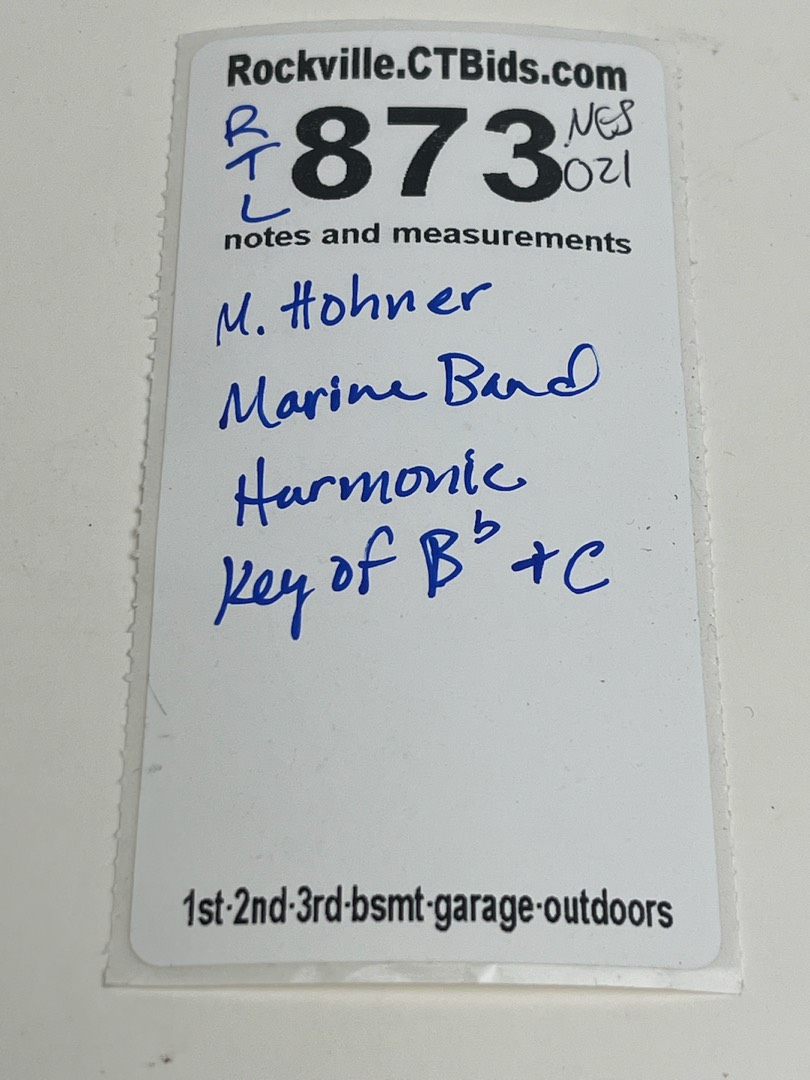 Rockville.CTBids.com
RTL 873 NES 021
notes and measurements
M. Hohner
Marine Band
Harmonic
Key of B♭ + C
1st·2nd·3rd·bsmt·garage·outdoors